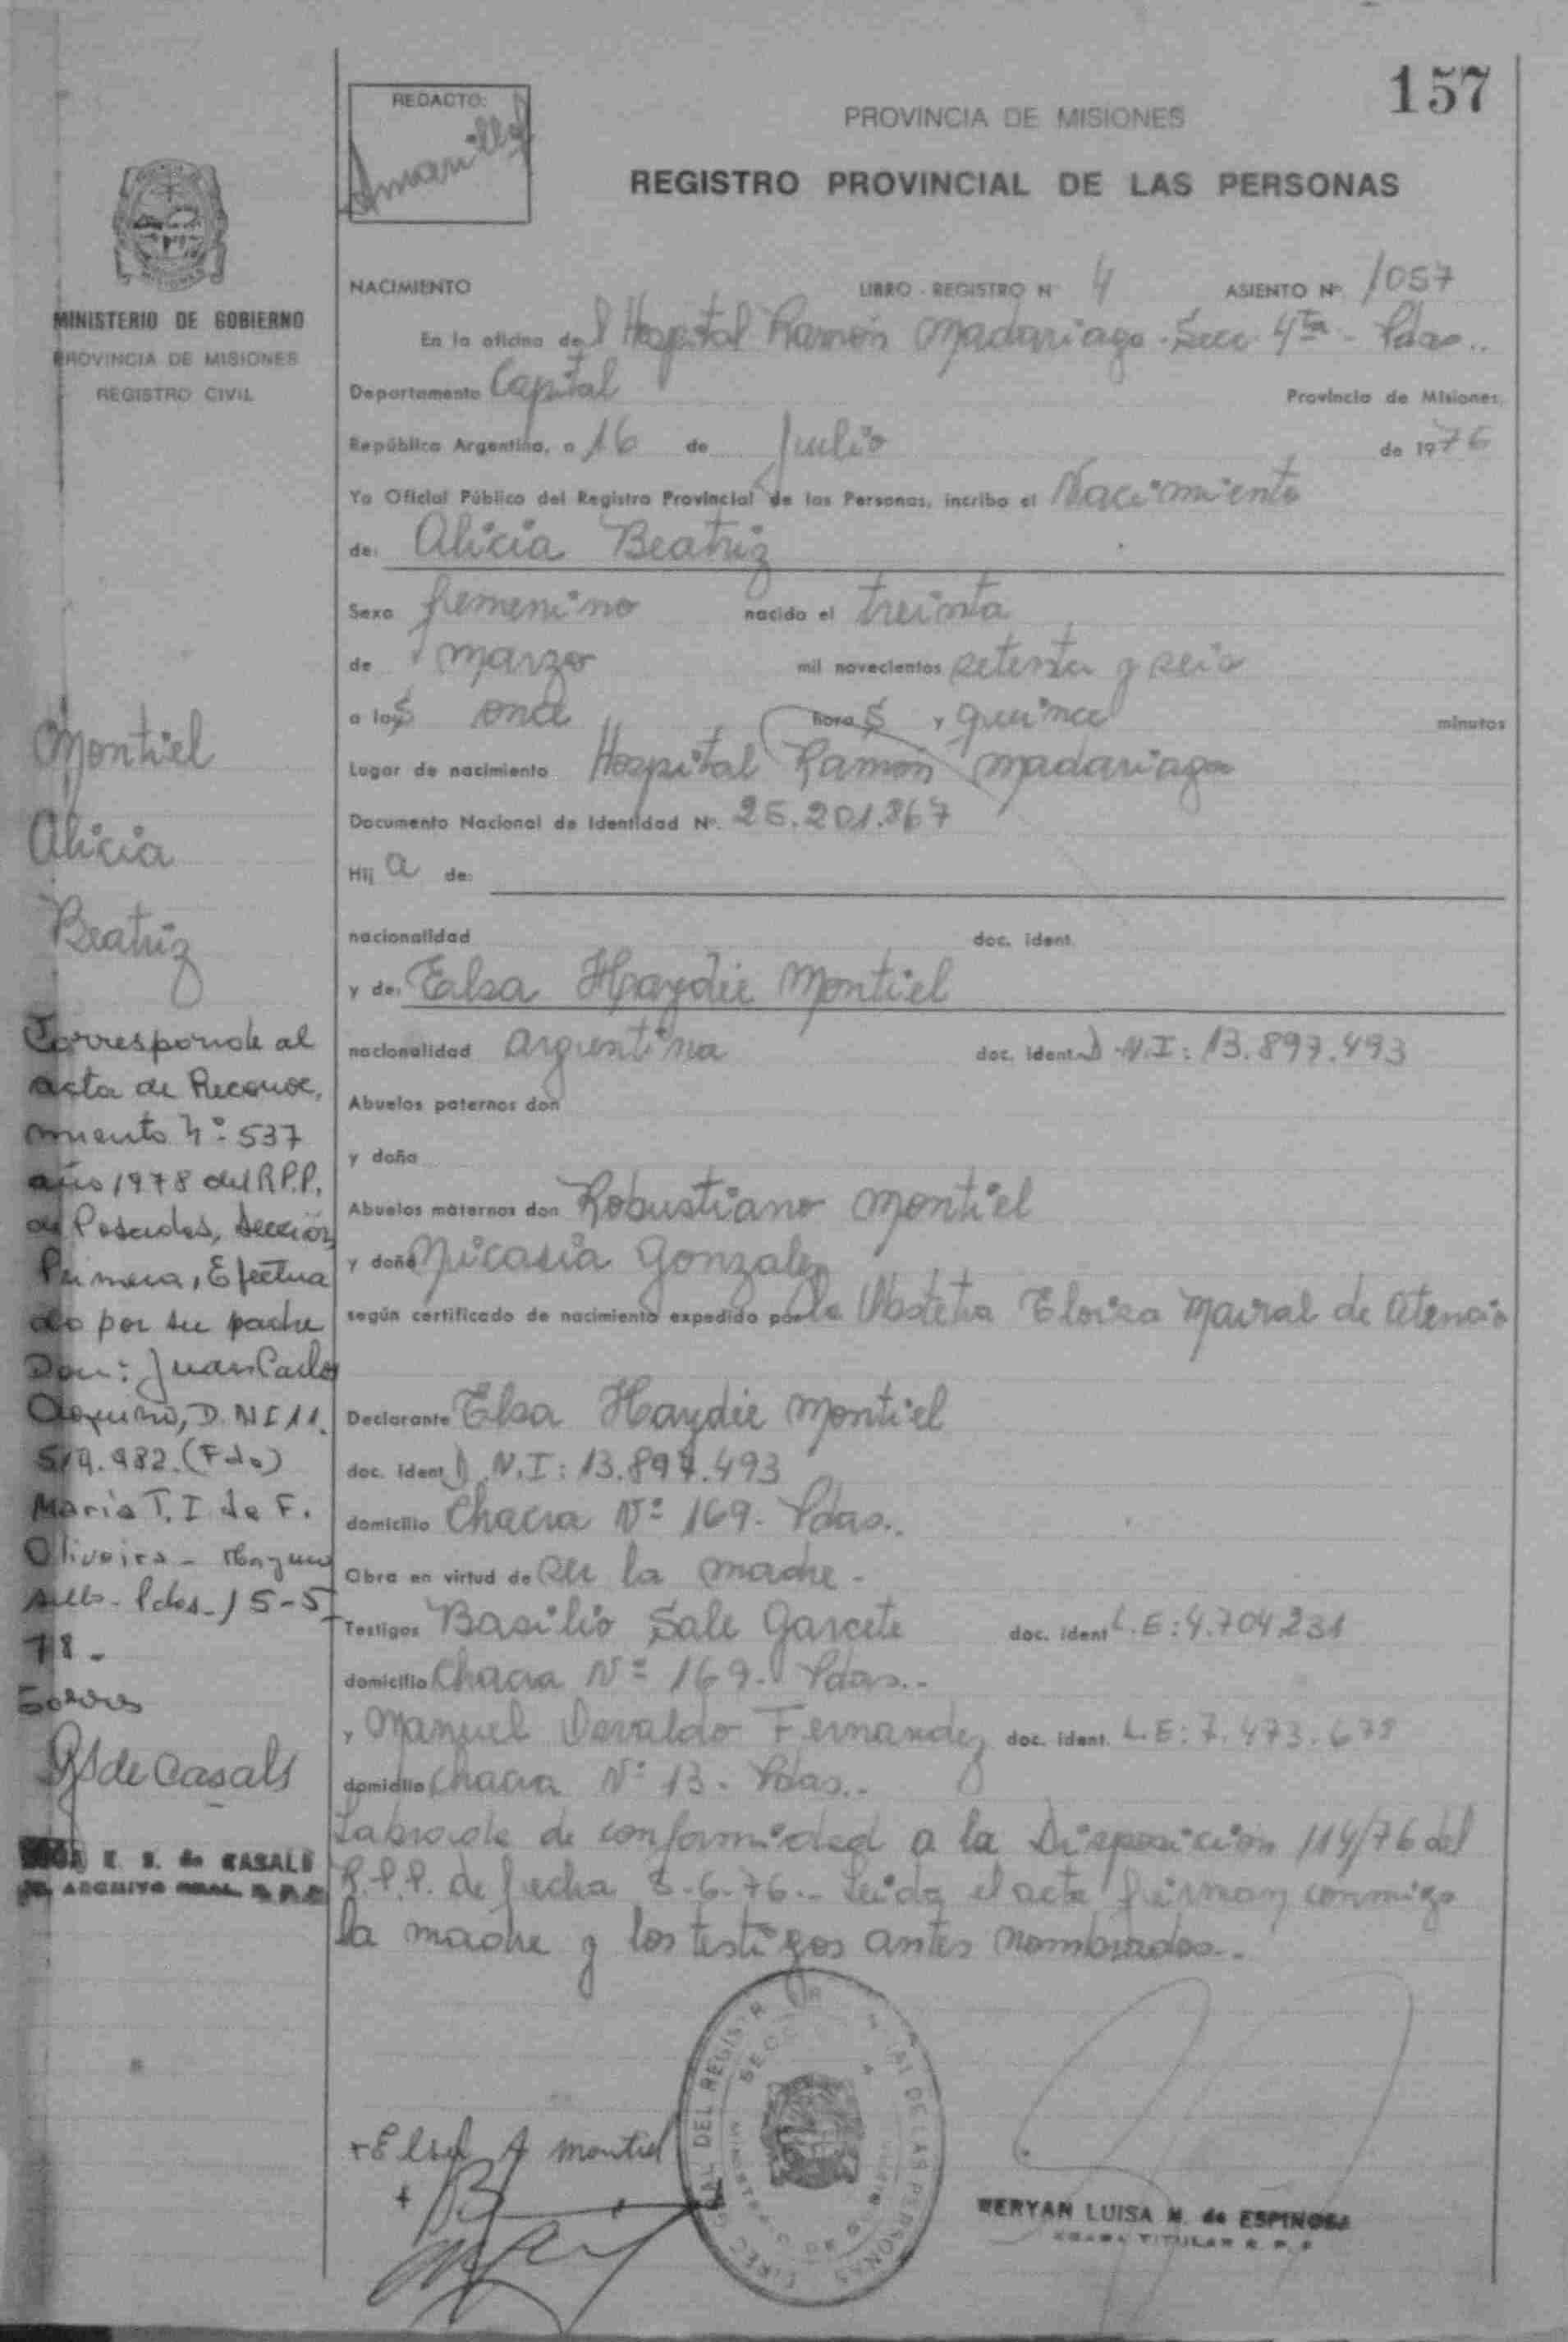 157
REDACTO:
Amarilla
PROVINCIA DE MISIONES
REGISTRO PROVINCIAL DE LAS PERSONAS
MISIONES
MINISTERIO DE GOBIERNO
PROVINCIA DE MISIONES
REGISTRO CIVIL
NACIMIENTO LIBRO - REGISTRO N 4 ASIENTO Nº. 1057
En la oficina del Hospital Ramón Madariaga - Secc. 4ta - Pdas..
Departamento Capital Provincia de Misiones,
República Argentina, a 16 de Julio de 1976
Yo Oficial Público del Registro Provincial de las Personas, incribo el Nacimiento
de: Alicia Beatriz
Sexo femenino nacido el treinta
de marzo mil novecientos setenta y seis
a las once horas y quince minutos
Lugar de nacimiento Hospital Ramón Madariaga
Documento Nacional de Identidad Nº. 25.201.867
Hij a de:
nacionalidad doc. ident.
y de: Elsa Haydée Montiel
nacionalidad argentina doc. ident. D.N.I: 13.897.493
Abuelos paternos don
y doña
Abuelos maternos don Robustiano Montiel
y doña Nicasia Gonzalez
según certificado de nacimiento expedido por la Obstetra Eloisa Mairal de Atencio
Declarante Elsa Haydée Montiel
doc. ident D.N.I: 13.897.493
domicilio Chacra Nº 169. Pdas..
Obra en virtud de ser la madre -
Testigos Basilio Sale Garcete doc. ident L.E: 4.704.231
domicilio Chacra Nº 169. Pdas..
y Manuel Osvaldo Fernandez doc. ident. L.E: 7.473.679
domicilio Chacra Nº 13. Pdas..
Labrada de conformidad a la Disposición 114/76 del
R.P.P. de fecha 8-6-76.- Leida el acta firman conmigo
la madre y los testigos antes nombrados.-
Montiel
Alicia
Beatriz
Corresponde al
acta de Reconoc,
miento Nº 537
año 1978 del R.P.P.
de Posadas, Sección
Primera, Efectua
do por su padre
Don: Juan Carlos
Aquino, D.N.I 11.
519.982. (Fdo)
Maria T. I de F.
Oliveira -
Pdas- 15-5-
78.-
GS de Casals
E. S. de CASALS
ARCHIVO GRAL. R.P.P.
+ Elsa A montiel
MERYAN LUISA M. de ESPINOSA
TITULAR R. P. P.